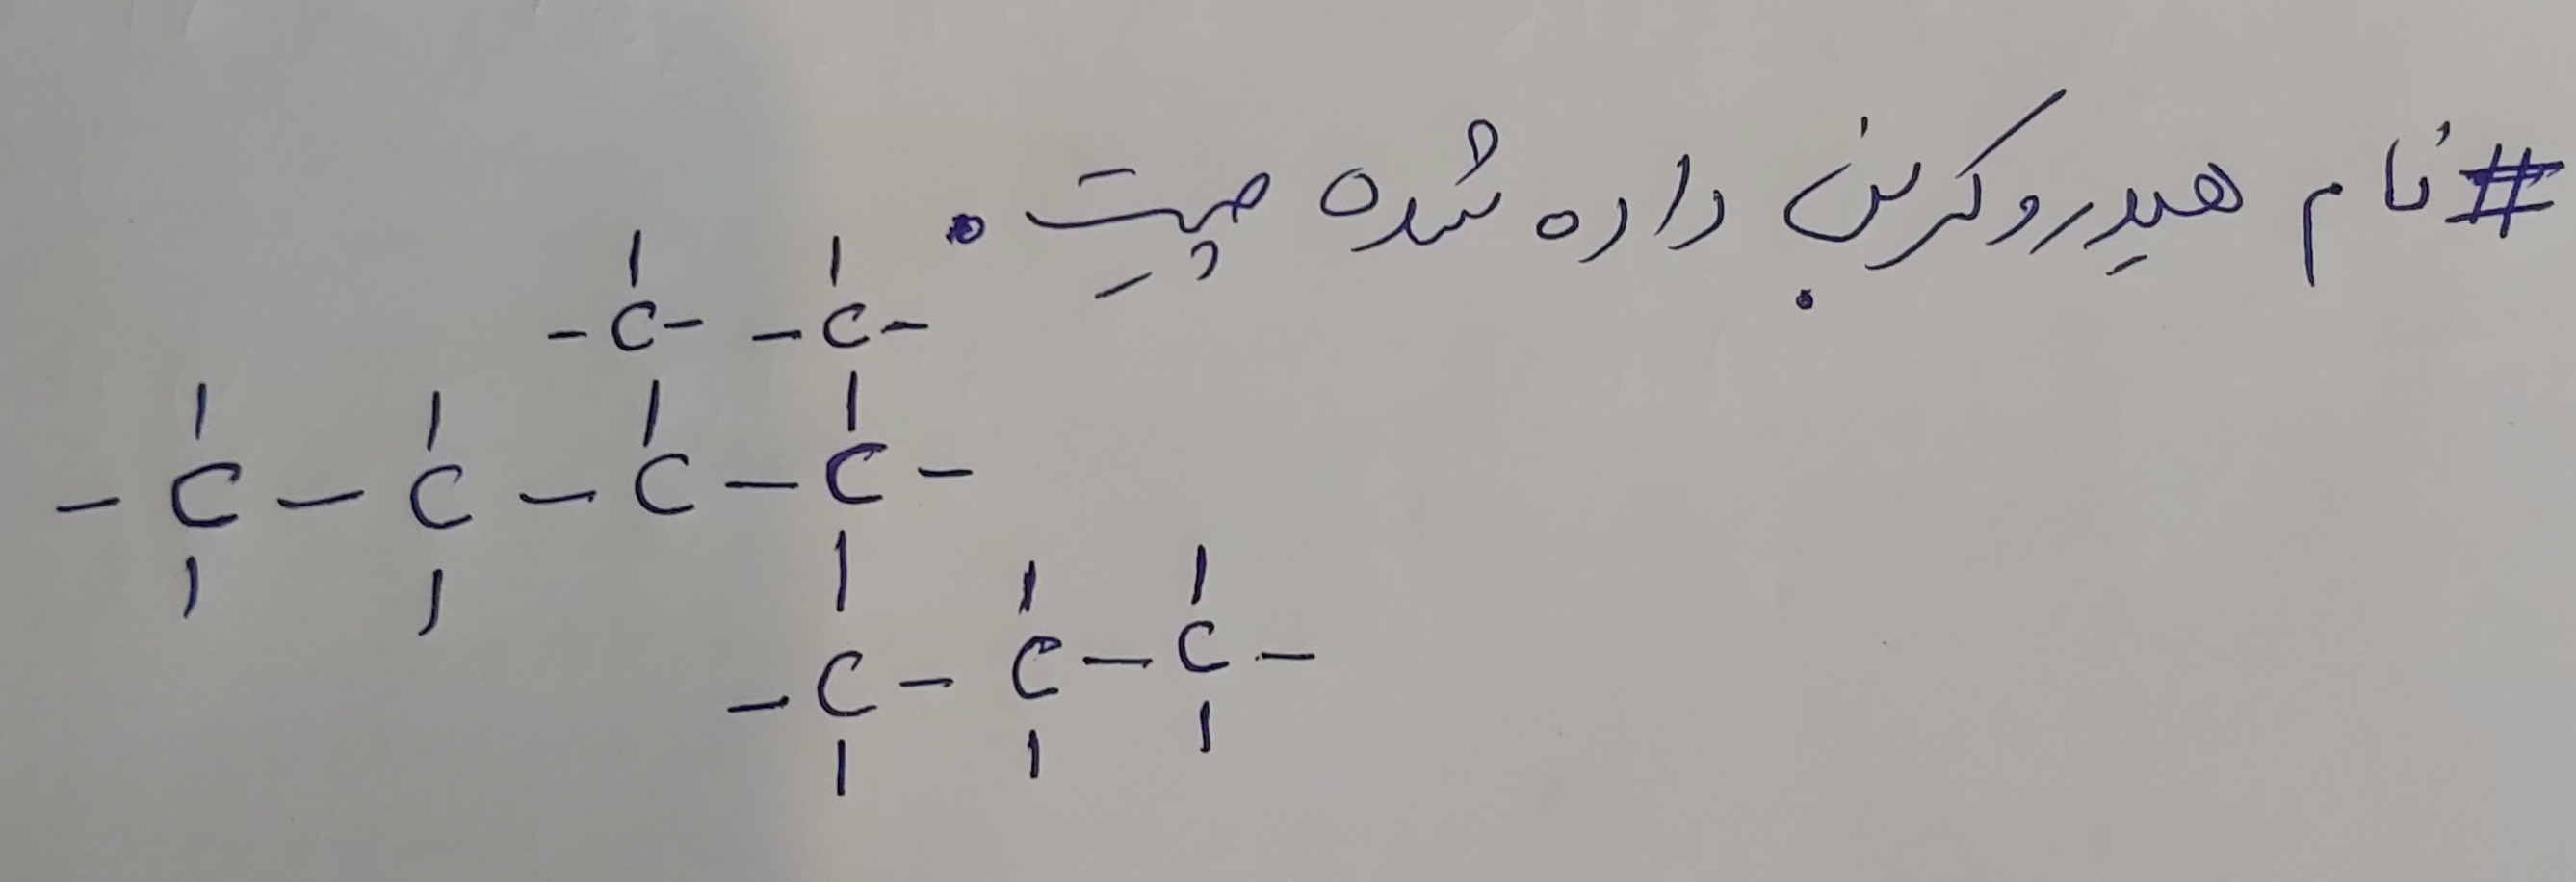 # نام هیدروکربن داده شده چیست.
- C - - C -
- C - C - C - C -
- C - C - C -